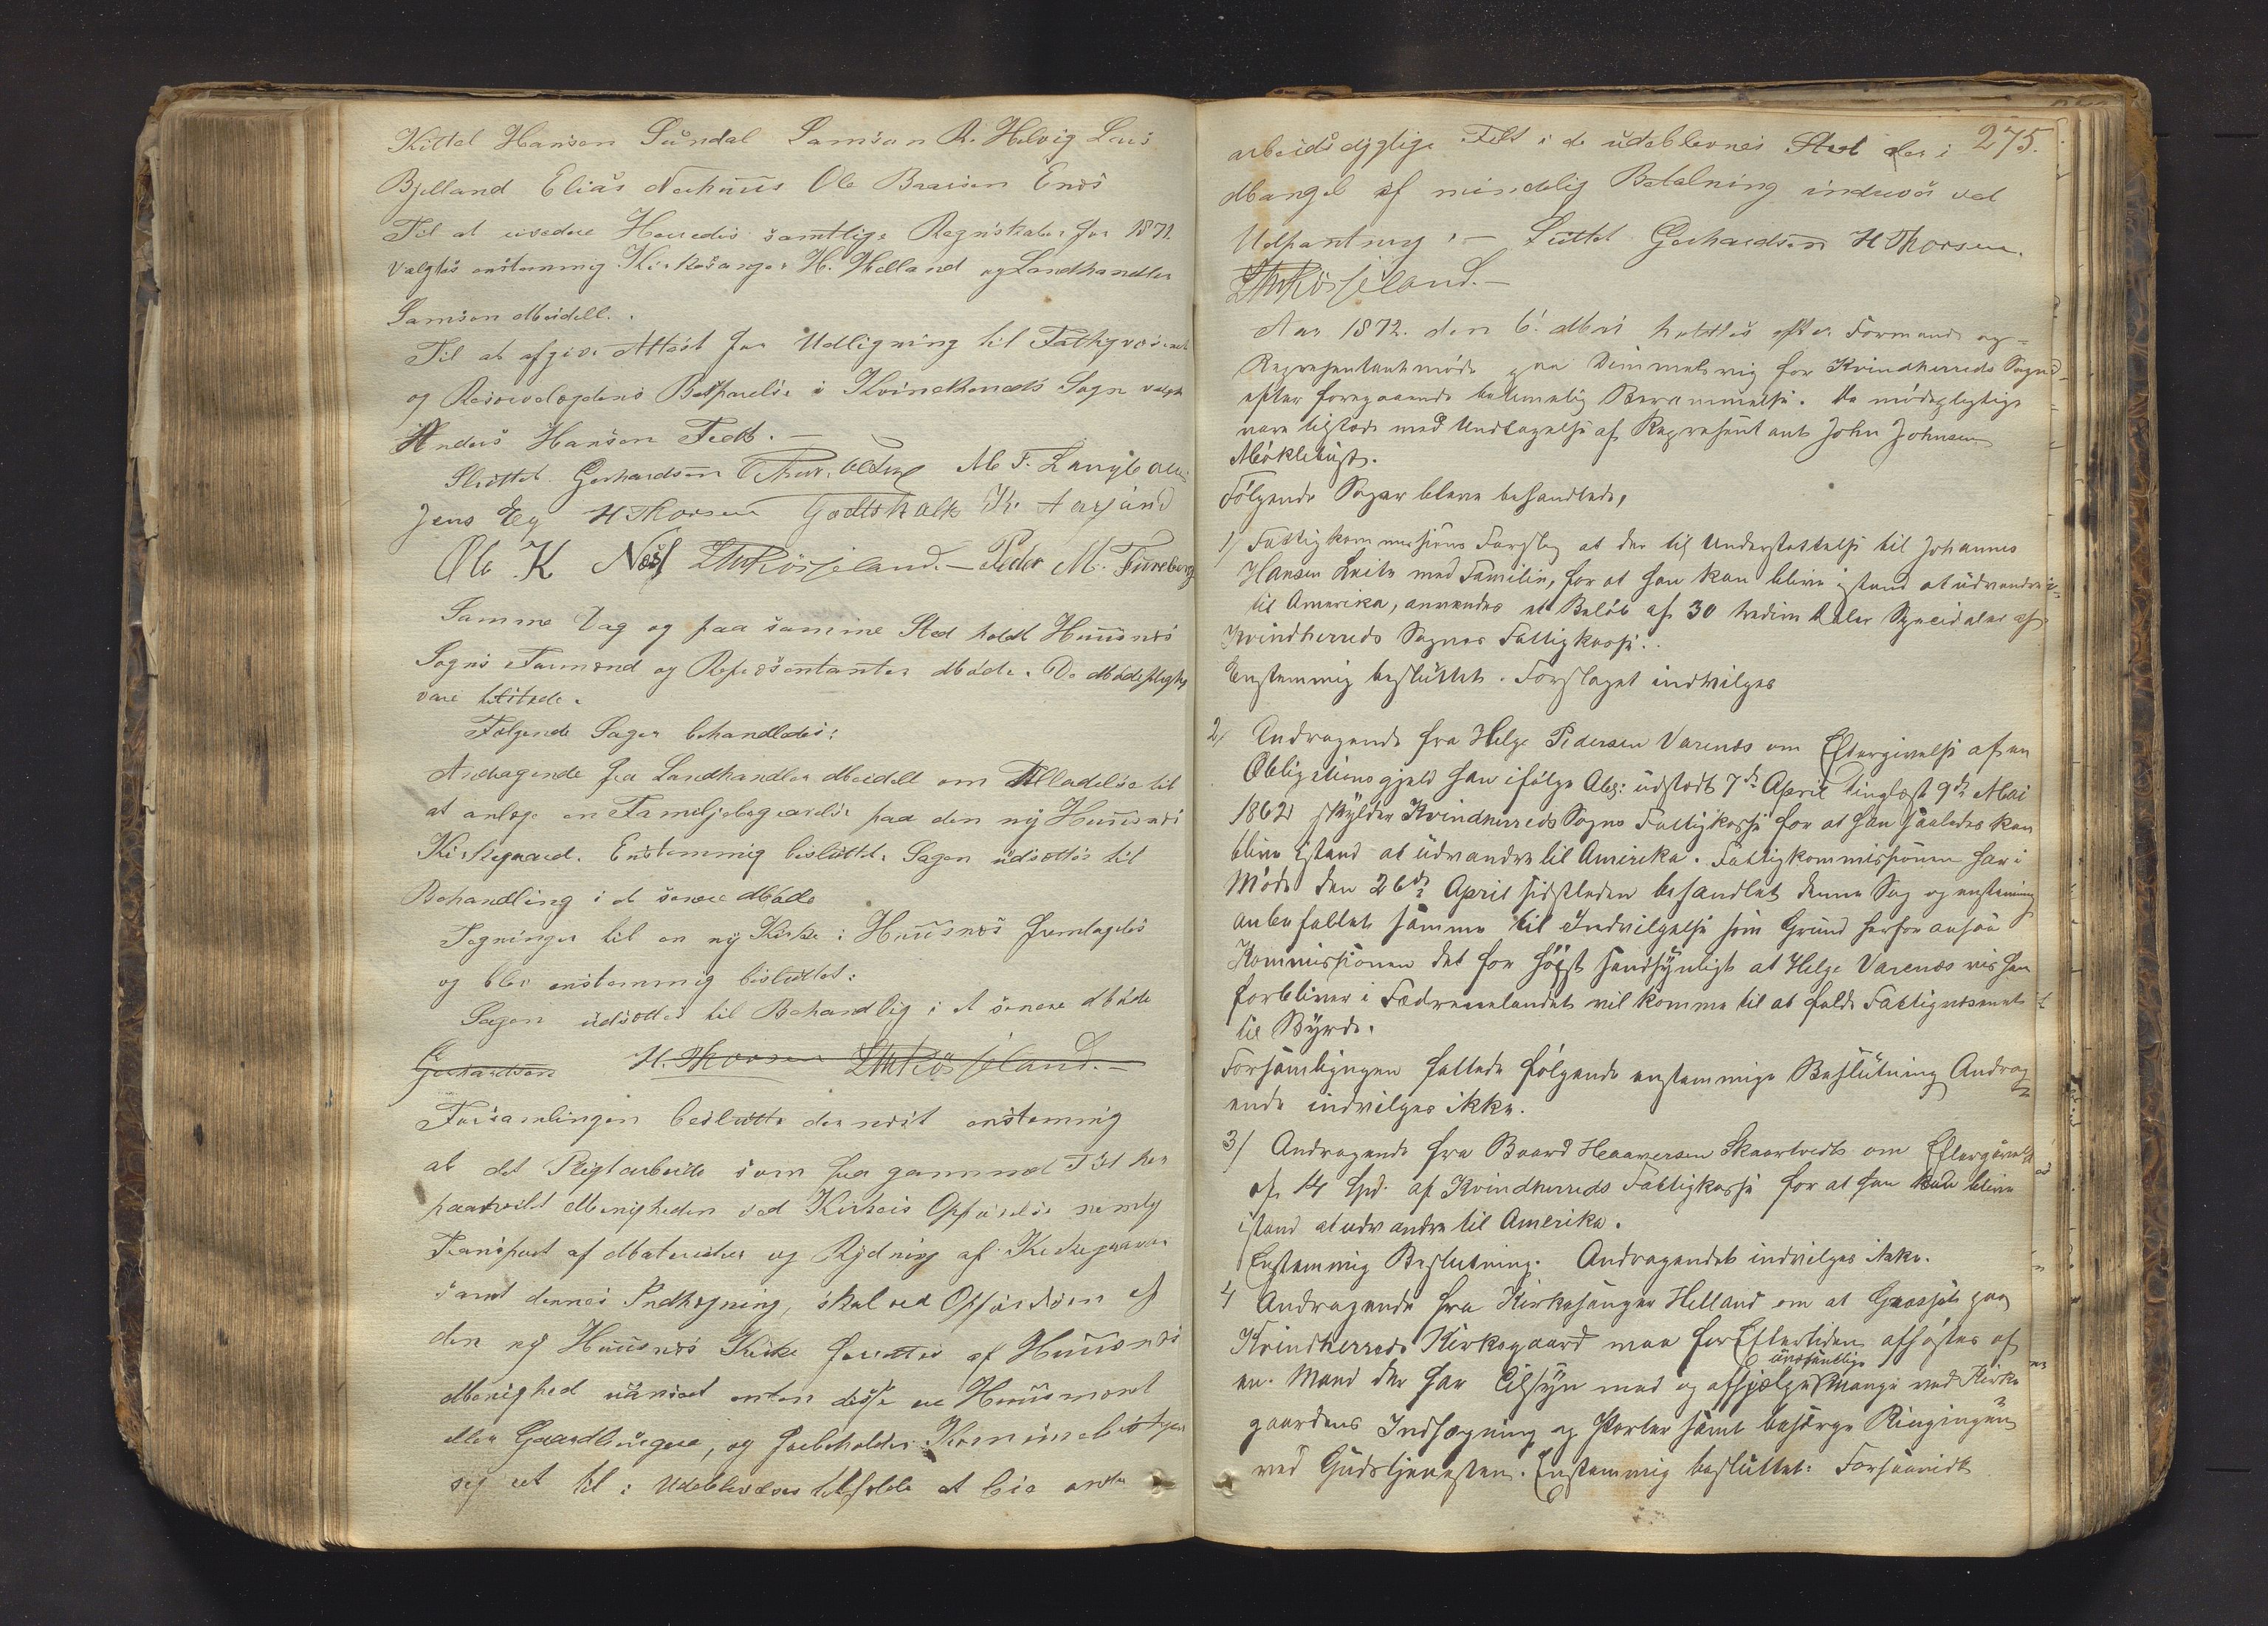 Kittel Hansen Sundal Samson R. Helvig Lars
Bjelland Elias Neshuus Ole Baarsen Enæs
Til at revidere Herredets samtlige Regnskaber for 1871.
valgtes enstemmig Kirkesanger H. Helland og Landhandler
Samson Meidell.
Til at afgive Attest for Udligning til Fattigvæsenet
og Reisevologdens Besparelse i Kvindherreds Sogn valgtes
Anders Hansen Fedt. —
Sluttet. Gerhardsen M. F.
Jens Eeg H Thorsen Godtskalk K.
Ole K Næs LMRösseland. — Peder M. Fureberg
Samme Dag og paa samme Sted holdt Huusnæs
Sogns Formænd og Repræsentanter Møde. De Mødepligtige
vare tilstede.
Følgende Sager behandledes:
Andragende fra Landhandler Meidell om Tilladelse til
at anlæge en Familjebegravelse paa den ny Huusnæs
Kirkegaard. Enstemmig besluttet. Sagen udsættes til
Behandling i et senere Møde
Tegninger til en ny Kirke i Huusnæs fremlagdes
og blev enstemmig besluttet:
Sagen udsættes til Behandlig i et senere Møde
Gerhardsen H. Thorsen LMRösseland. —
Forsamlingen besluttede dernæst enstemmig
at det Pligtarbeide som fra gammel Tid har
paahvilt Menigheden ved Kirkers Opførelse nemlig
Transport af Materialier og Rydning af Kirkegaarde
samt dennes Indhegning, skal ved Opførelsen af
den ny Huusnæs Kirke forrettes af Huusnæs
Menighed uanseet enten disse ere Huusmænd
eller Gaardbrugere, og forbeholder Kommunebestyrer
sig ret til i Udeblivelses tilfælde at leie andre
275.
arbeidsdygtige Folk i de udeblevnes Sted der i
Mangel af mindelig Betalning inddrives ved
Udpantning. — Sluttet Gerhardsen H Thorsen.
LMRösseland. —
Aar 1872. den 6. Mai holdtes efter Formands og
Repræsentantmøde paa Dimmelsvig for Kvindherreds Sogn
efter foregaaende bekjendtlig Berammelse. De mødepligtige
vare tilstede med Undtagelse af Repræsentant John Johnsen
Møklebust.
Følgende Sager bleve behandlede,
1/ Fattigkommissions Forslag at der til Understøttelse til Johannes
Hansen Leite med Familie, for at han kan blive istand at udvandre
til Amerika, anvendes et Beløb af 30 tredive Daler Speciedaler af
Kvindherreds Sognes Fattigkasse.
Enstemmig besluttet. Forslaget indvilges
2/ Andragende fra Helge Pedersen Varenæs om Eftergivelse af en
Obligationsgjeld han ifølge Obl: udstedt 7de April tinglæst 9de Mai
1862 skylder Kvindherreds Sogns Fattigkasse for at han saaledes kan
blive istand at udvandre til Amerika. Fattigkommissionen har i
Møde den 26de April sidstleden behandlet denne Sag og enstemmig
anbefallet samme til Indvilgelse som Grund herfor ansaa
Kommissionen det for høist sandsynligt at Helge Varenæs vis han
forbliver i Fædrenelandet vil komme til at falde Fattigvæsenet
til Byrde.
Forsamlingen fattede følgende enstemmige Beslutning Andrag
ende indvilges ikke.
3/ Andragende fra Baard Haaversen Skaartvedt om Eftergivelse
af 14 Spd. af Kvindherreds Fattigkasse for at han kan blive
istand at udvandre til Amerika.
Enstemmig Beslutning. Andragendet indvilges ikke.
4 Andragende fra Kirkesanger Helland om at Græsset paa
Kvindherreds Kirkegaard maa for Eftertiden afhøstes af
en Mand der har Tilsyn med og afhjælper uvæsentlige Mangler ved Kirke
gaardens Indhegning og Porter samt besørge Ringingen
ved Gudstjenesten. Enstemmig besluttet: Forsaavidt